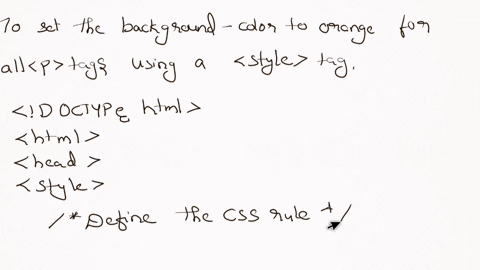 To set the background-color to orange for
all<p> tags using a <style> tag.
<!DOCTYPE html>
<html>
<head >
<style>
/*Define the CSS rule */